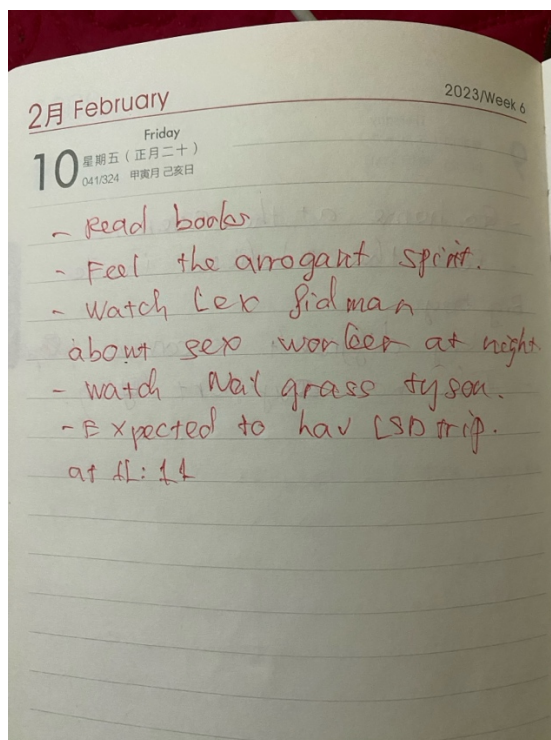 2月 February
2023/Week 6
10
Friday
星期五（正月二十）
041/324 甲寅月 己亥日
- Read books
- Feel the arrogant spirit.
- Watch Lex fidman
about sex worker at night
- watch Nail grass tyson.
- Expected to hav LSD trip.
at 11:11